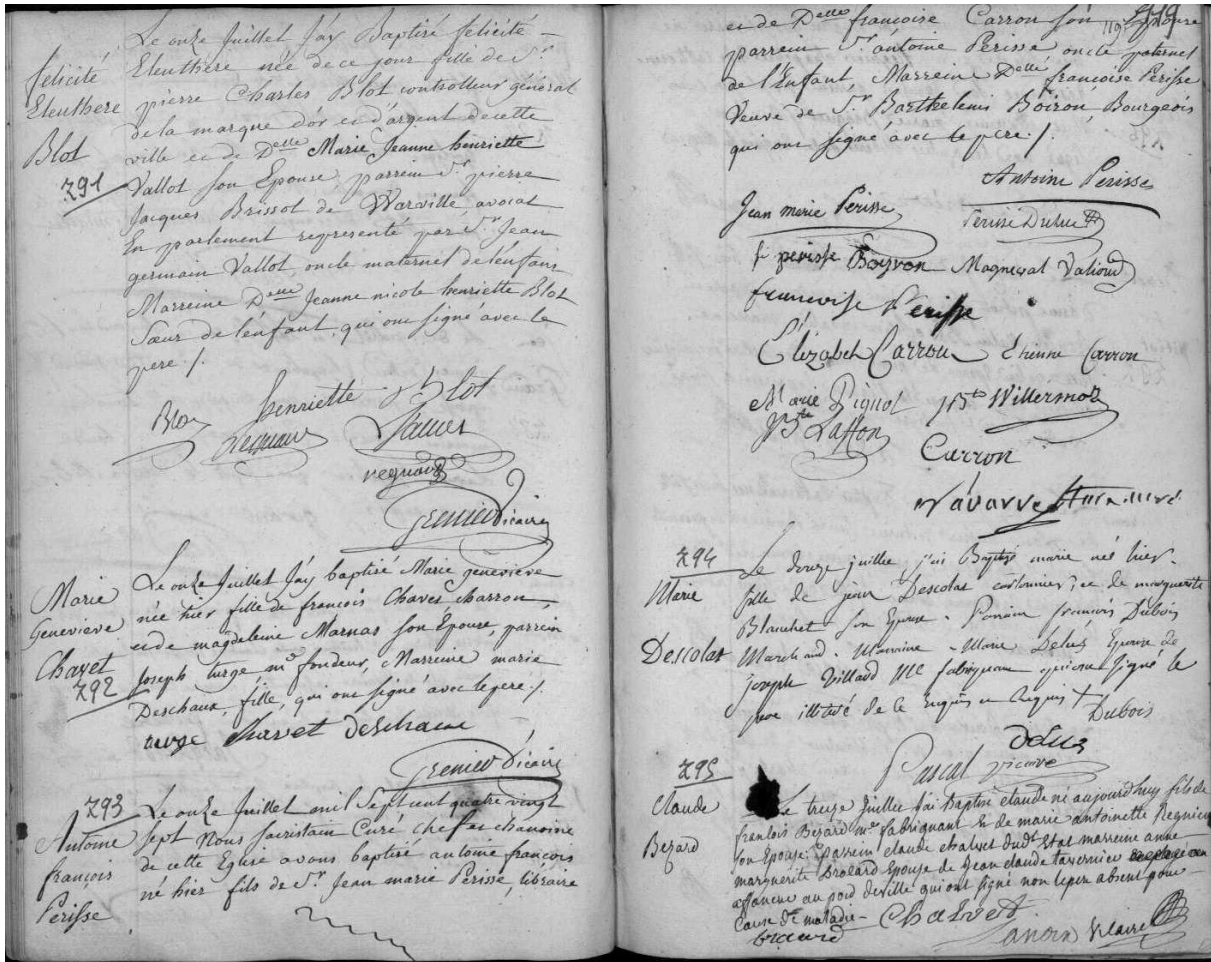 felicité
Eleuthere
Blot
291
Le onze Juillet Jay Baptisé felicité
Eleuthere née de ce jour fille de Sr
pierre Charles Blot controlleur général
de la marque d'or et d'argent de cette
ville et de Delle Marie Jeanne henriette
Vallot son Epouse, parrein Sr pierre
Jacques Brissot de Warville avocat
En parlement representé par Sr Jean
germain Vallot, oncle maternel de l'enfant
Marreine Delle Jeanne nicole henriette Blot
Sœur de l'enfant, qui ont signé avec le
pere ./.
Blot henriette Blot
regnaud
Grenier Vicaire
Marie
Genevieve
Chavet
292
Le onze Juillet Jay baptisé Marie genevieve
née hier fille de françois Chavet charron,
et de magdeleine Marnas son Épouse, parrein
joseph turge, me fondeur, Marreine marie
Deschaux, fille, qui ont signé avec le pere ./.
turge Chavet deschaux
Grenier Vicaire
293
Antoine
françois
Perisse
Le onze Juillet mil Sept cent quatre vingt
sept Nous Sacristain Curé chef et chanoine
de cette Eglise avons baptisé antoine françois
né hier fils de Sr Jean marie Perisse, libraire
119
et de Delle françoise Carron son Epouse
parrein Sr antoine Perisse oncle paternel
de l'Enfant Marreine Delle françoise Perisse
Veuve de Sr Barthelemi Boiron Bourgeois
qui ont signé avec le pere ./.
Antoine Perisse
Jean marie Perisse Perisse Duluc
f perisse Boyron Magneval Valioud
francoise Perisse
Elizabet Carron Etienne Carron
Marie Pignol JBte Willermoz
JBte Laffon
Carron
Navarre
294
Marie
Descolas
Le douze juillet j'ai Baptisé marie né hier
fille de jean Descolas cordonnier, et de marguerite
Blanchet son Epouse. Parrain françois Dubois
Marchand. Marraine Marie Deluz Epouse de
joseph Villard Me fabriquan qui ont signé le
pere illitéré de ce Enquis et Requis
Dubois
deluz
Pascal vicaire
295
Claude
Bezard
Le treize Juillet J'ai Baptisé claude né aujourd'huy fils de
francois Bezard me fabriquant & de marie antoinette Regnier
son Epouse: parrein claude chalvet dudt Etat marreine anne
marguerite Brolard Epouse de Jean claude tavernier
affaneur au poid de ville qui ont signé non le pere absent pour
Cause de maladie
Chalvet
Vicaire